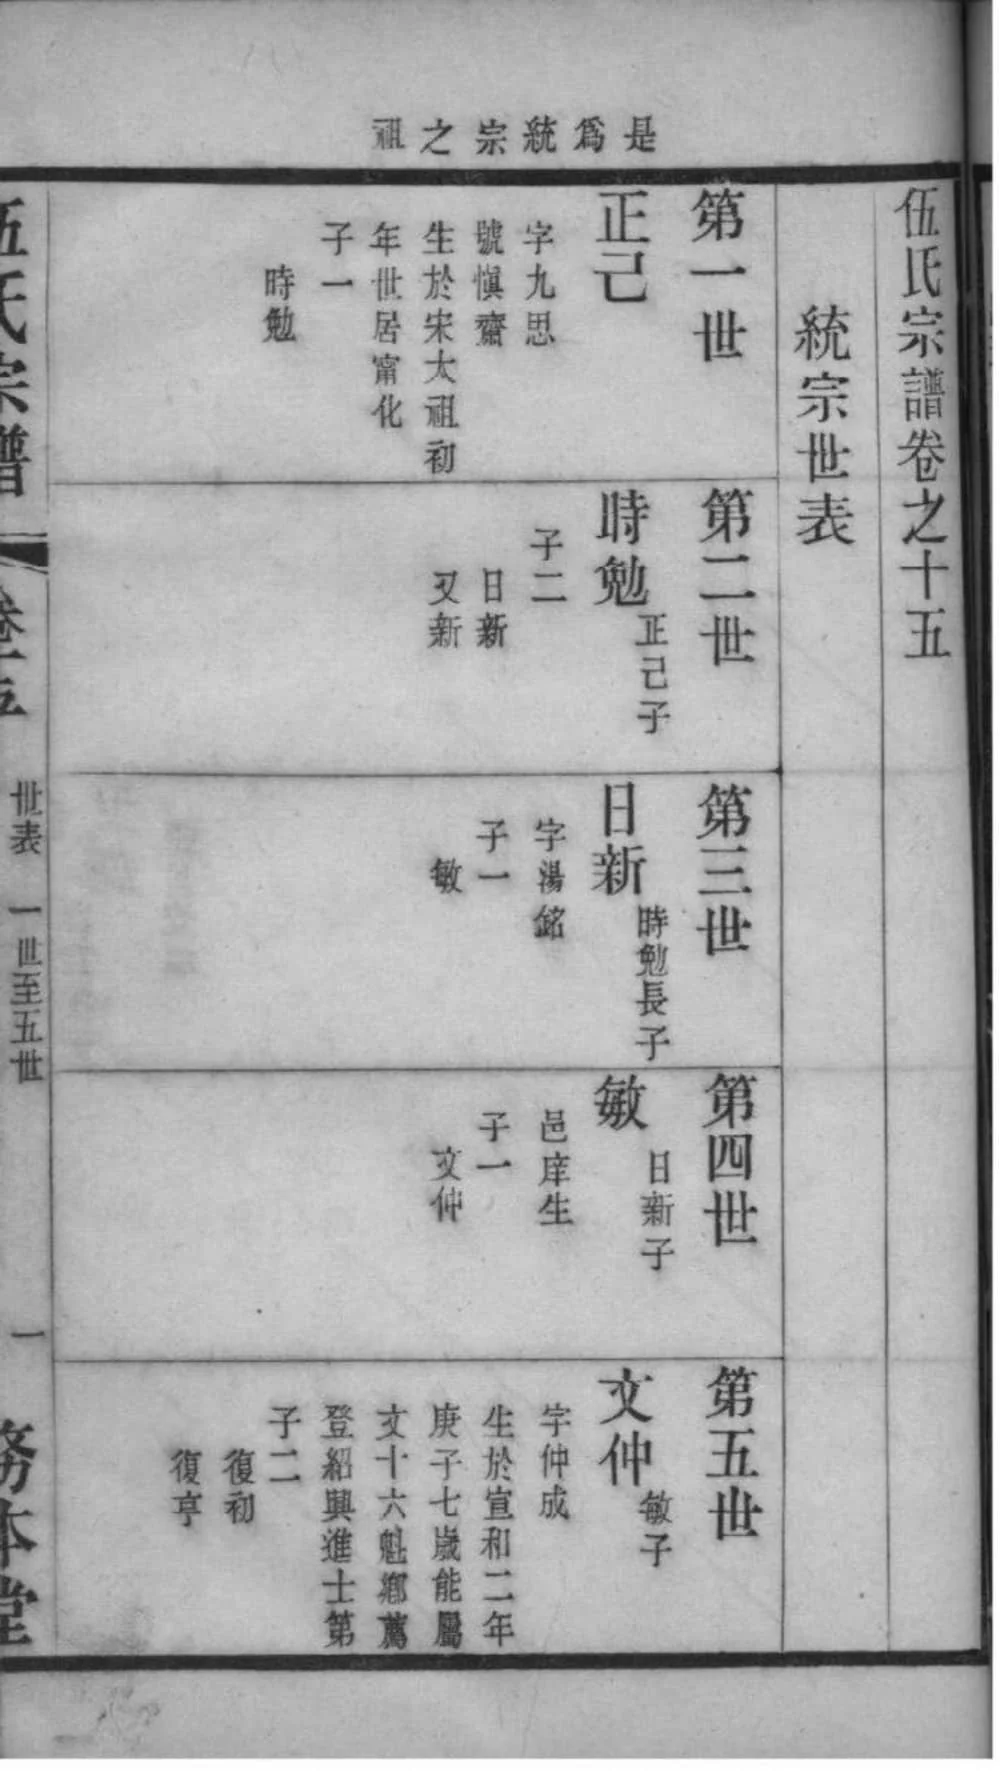 是為統宗之祖
伍氏宗譜卷之十五
統宗世表
第一世
正己
字九思
號慎齋
生於宋太祖初
年世居甯化
子一
時勉
第二世
時勉 正己子
子二
日新
又新
第三世
日新 時勉長子
字湯銘
子一
敏
第四世
敏 日新子
邑庠生
子一
文仲
第五世
文仲 敏子
字仲成
生於宣和二年
庚子七歲能屬
文十六魁鄉薦
登紹興進士第
子二
復初
復亨
伍氏宗譜
卷十五
世表 一世至五世
一
務本堂